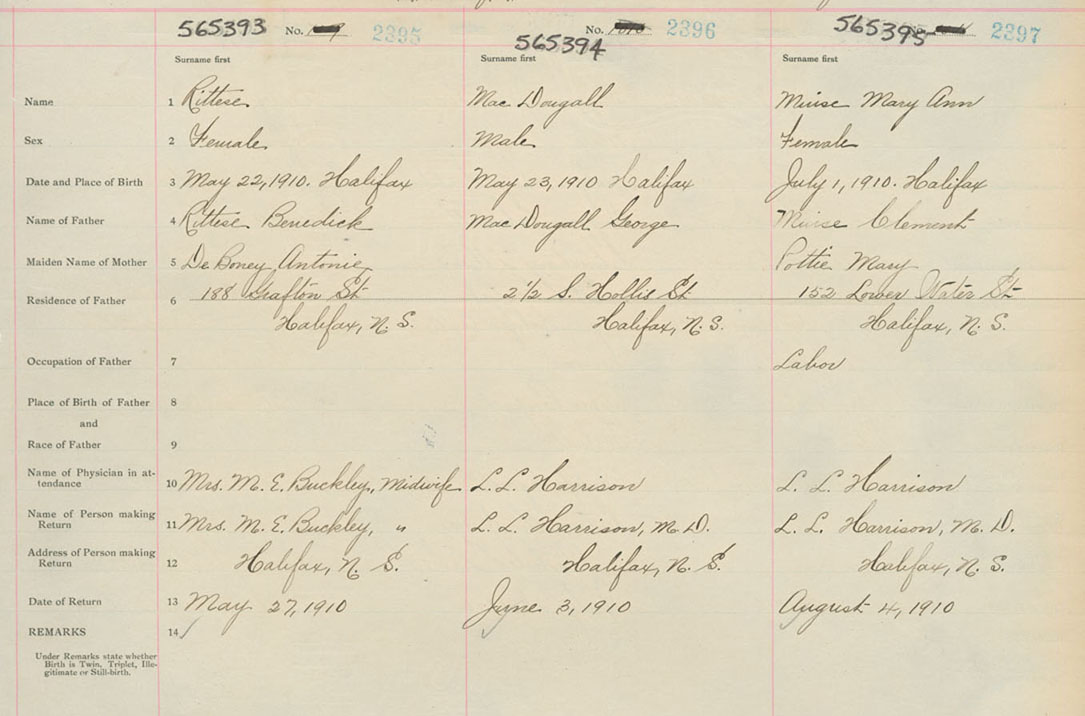 565393 No. 2395 No. 2396 565395 2397
565394
Surname first Surname first Surname first
Name 1 Rittese Mac Dougall Muise Mary Ann
Sex 2 Female Male Female
Date and Place of Birth 3 May 22, 1910. Halifax May 23, 1910 Halifax July 1, 1910. Halifax
Name of Father 4 Rittese Benedick Mac Dougall George Muise Clement
Maiden Name of Mother 5 De Boney Antonie Pottie Mary
Residence of Father 6 188 Grafton St 2 1/2 S. Hollis St 152 Lower Water St
Halifax, N. S. Halifax, N. S. Halifax, N. S.
Occupation of Father 7 Labor
Place of Birth of Father 8
and
Race of Father 9
Name of Physician in at-
tendance 10 Mrs. M. E. Buckley, Midwife L. L. Harrison L. L. Harrison
Name of Person making
Return 11 Mrs. M. E. Buckley, " L. L. Harrison, M. D. L. L. Harrison, M. D.
Address of Person making
Return 12 Halifax, N. S. Halifax, N. S. Halifax, N. S.
Date of Return 13 May 27, 1910 June 3, 1910 August 4, 1910
REMARKS 14
Under Remarks state whether
Birth is Twin, Triplet, Ille-
gitimate or Still-birth.